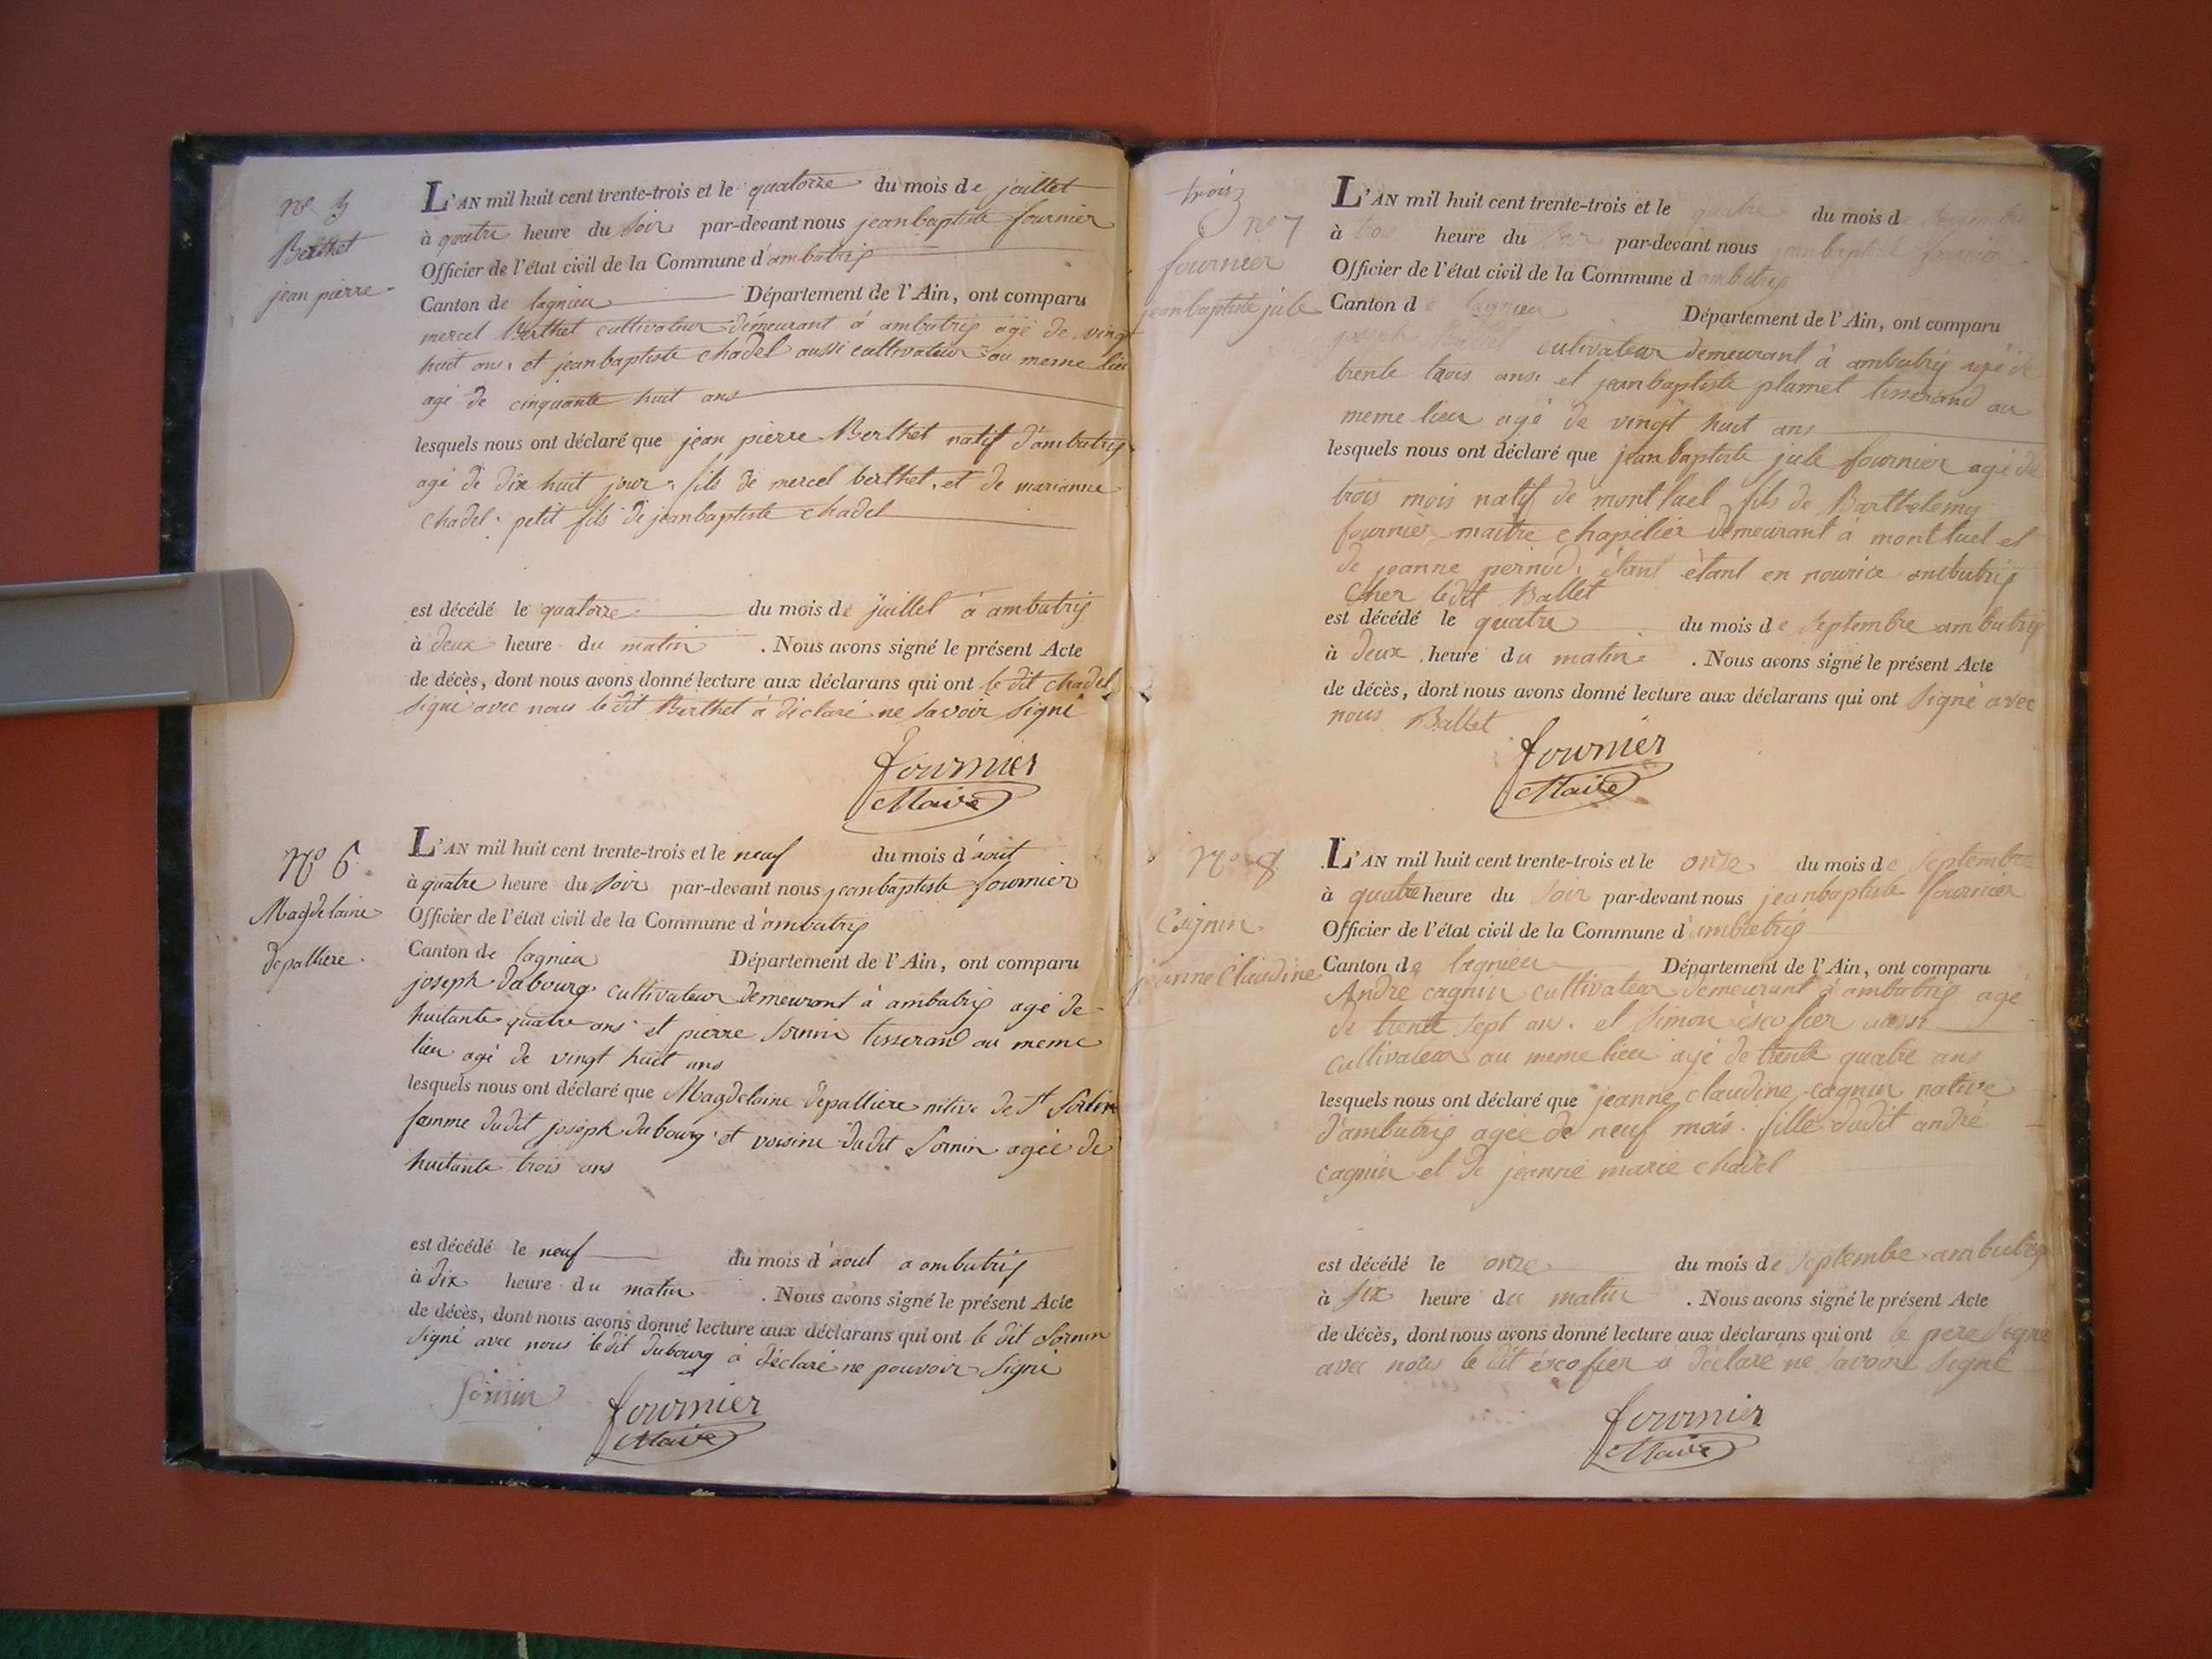 nº 5
Berthet
jean pierre
L'AN mil huit cent trente-trois et le quatorze du mois de juillet
à quatre heure du soir par-devant nous jeanbaptiste fournier
Officier de l'état civil de la Commune d'ambutrix
Canton de lagnieu Département de l'Ain, ont comparu
mercel Berthet cultivateur démeurant à ambutrix agé de vingt
huit ans, et jeanbaptiste chadel aussi cultivateur au meme lieu
agé de cinquante huit ans
lesquels nous ont déclaré que jean pierre Berthet natif d'ambutrix
agé de dix huit jour, fils de mercel berthet, et de marianne
chadel, petit fils de jeanbaptiste chadel
est décédé le quatorze du mois de juillet à ambutrix
à deux heure du matin . Nous avons signé le présent Acte
de décès, dont nous avons donné lecture aux déclarans qui ont le dit chadel
signé avec nous le dit Berthet à déclaré ne savoir signé
fournier
Maire
Nº 6
Magdelaine
depalliere
L'AN mil huit cent trente-trois et le neuf du mois d'aout
à quatre heure du soir par-devant nous jeanbaptiste fournier
Officier de l'état civil de la Commune d'ambutrix
Canton de lagnieu Département de l'Ain, ont comparu
joseph dubourg cultivateur demeurant à ambutrix agé de
huitante quatre ans et pierre sornin tisserand au meme
lieu agé de vingt huit ans
lesquels nous ont déclaré que Magdelaine depalliere nitive de St Sorlin
femme dudit joseph dubourg et voisine dudit Sornin agée de
huitante trois ans
est décédé le neuf du mois d'aout a ambutrix
à dix heure du matin . Nous avons signé le présent Acte
de décès, dont nous avons donné lecture aux déclarans qui ont le dit Sornin
signé avec nous le dit dubourg à déclaré ne pouvoir signé
Sornin fournier
Maire
trois
nº 7
fournier
jeanbaptiste jule
L'AN mil huit cent trente-trois et le quatre du mois de septembre
à trois heure du soir par-devant nous jeanbaptiste fournier
Officier de l'état civil de la Commune d'ambutrix
Canton de lagnieu Département de l'Ain, ont comparu
joseph Ballet cultivateur demeurant à ambutrix agé de
trente trois ans, et jeanbaptiste plamet tisserand au
meme lieu agé de vingt huit ans
lesquels nous ont déclaré que jeanbaptiste jule fournier agé de
trois mois natif de montluel fils de Barthelemy
fournier maitre chapelier demeurant à montluel et
de jeanne pernod, étant étant en nourice ambutrix
Cher ledit Ballet
est décédé le quatre du mois de septembre ambutrix
à deux heure du matin . Nous avons signé le présent Acte
de décès, dont nous avons donné lecture aux déclarans qui ont signé avec
nous Ballet
fournier
Maire
Nº 8
Cagnin
jeanne Claudine
L'AN mil huit cent trente-trois et le onze du mois de septembre
à quatre heure du soir par-devant nous jeanbaptiste fournier
Officier de l'état civil de la Commune d'ambutrix
Canton de lagnieu Département de l'Ain, ont comparu
Andre cagnin cultivateur demeurant à ambutrix agé
de trente sept ans, et Simon éscofier aussi
cultivateur au meme lieu agé de trente quatre ans
lesquels nous ont déclaré que jeanne claudine cagnin native
d'ambutrix agée de neuf mois, fille dudit andré
cagnin et de jeanne marie chadel
est décédé le onze du mois de septembre ambutrix
à six heure du matin . Nous avons signé le présent Acte
de décès, dont nous avons donné lecture aux déclarans qui ont le pere signé
avec nous le dit éscofier à déclaré ne savoire signé
fournier
Maire